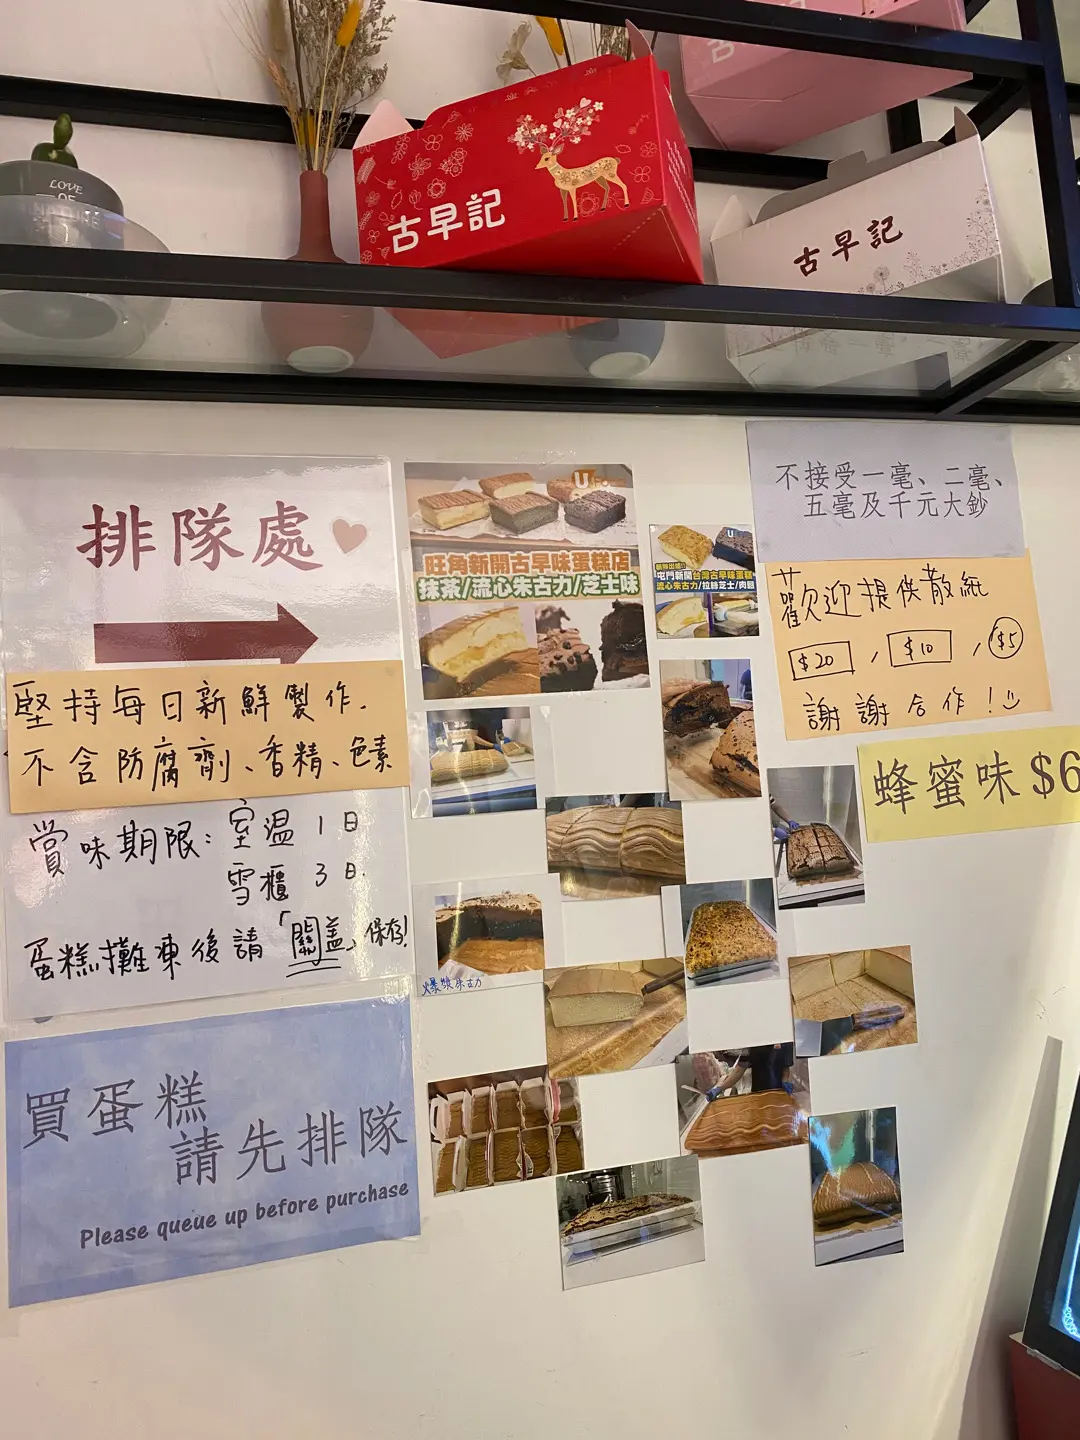 LOVE
OF
NATURE
古早記
古早記
排隊處
堅持每日新鮮製作.
不含防腐劑、香精、色素
賞味期限: 室溫 1日
雪櫃 3日.
蛋糕攤凍後請「關蓋」保存!
買蛋糕
請先排隊
Please queue up before purchase
U
旺角新開古早味蛋糕店
抹茶/流心朱古力/芝士味
U
屯門新開台灣古早味蛋糕
流心朱古力/拉絲芝士/肉鬆
爆漿朱古力
不接受一毫、二毫、
五毫及千元大鈔
歡迎提供散紙
$20 , $10 , $5
謝謝合作!
蜂蜜味 $6